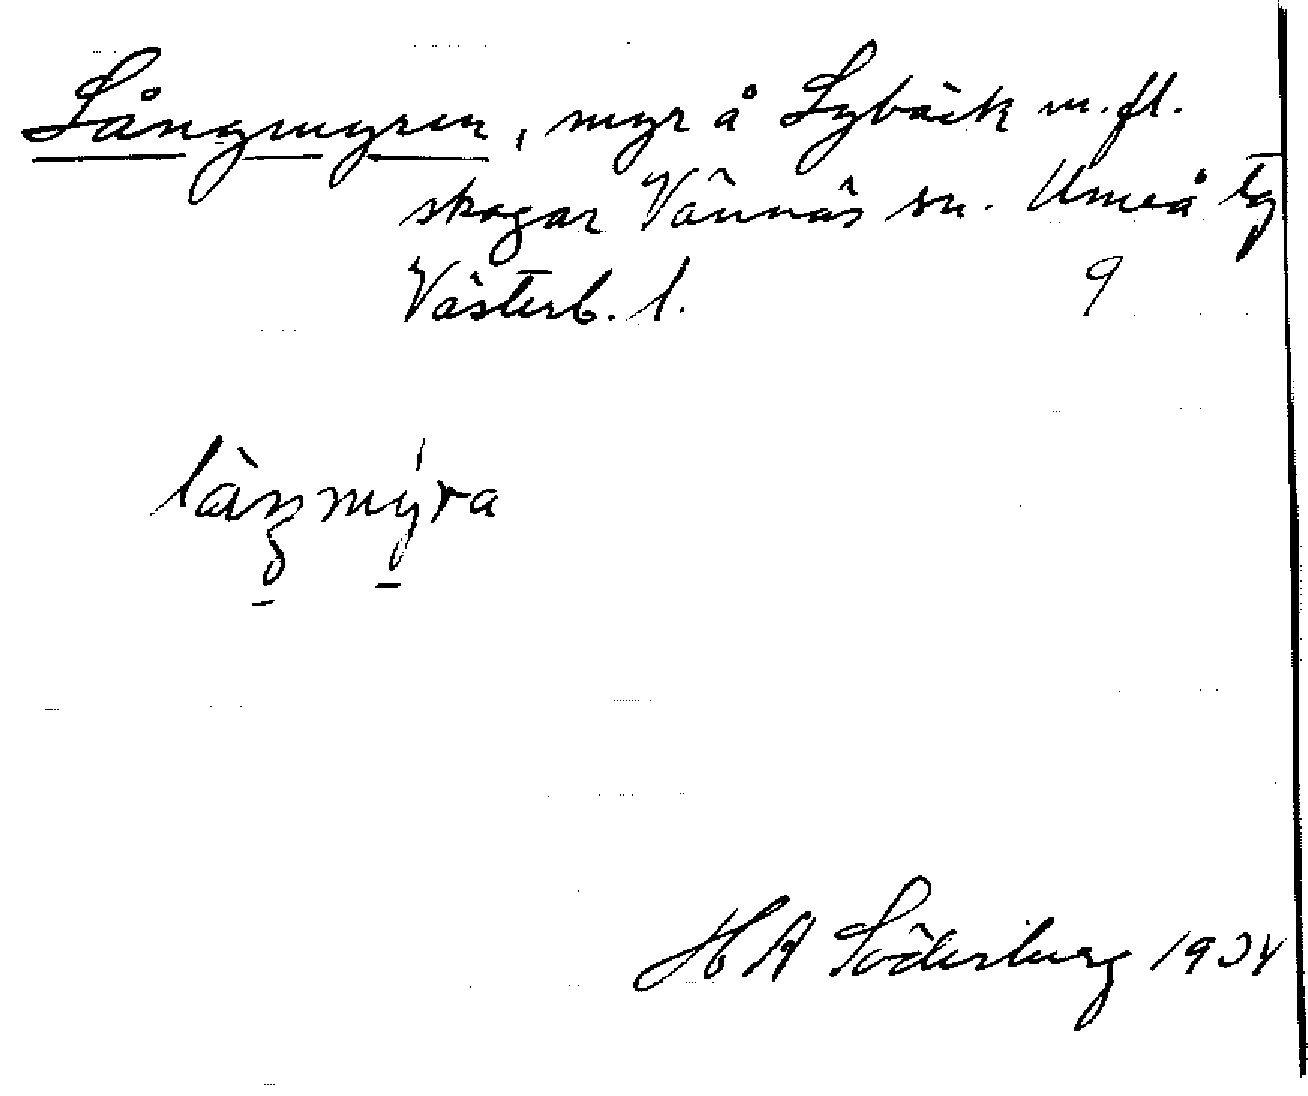 Långmyren, myr å Lybäck m.fl.
skogar Vännäs sn. Umeå tg
Västerb. l. 9
làŋmy̱ra
HA Söderberg 1934